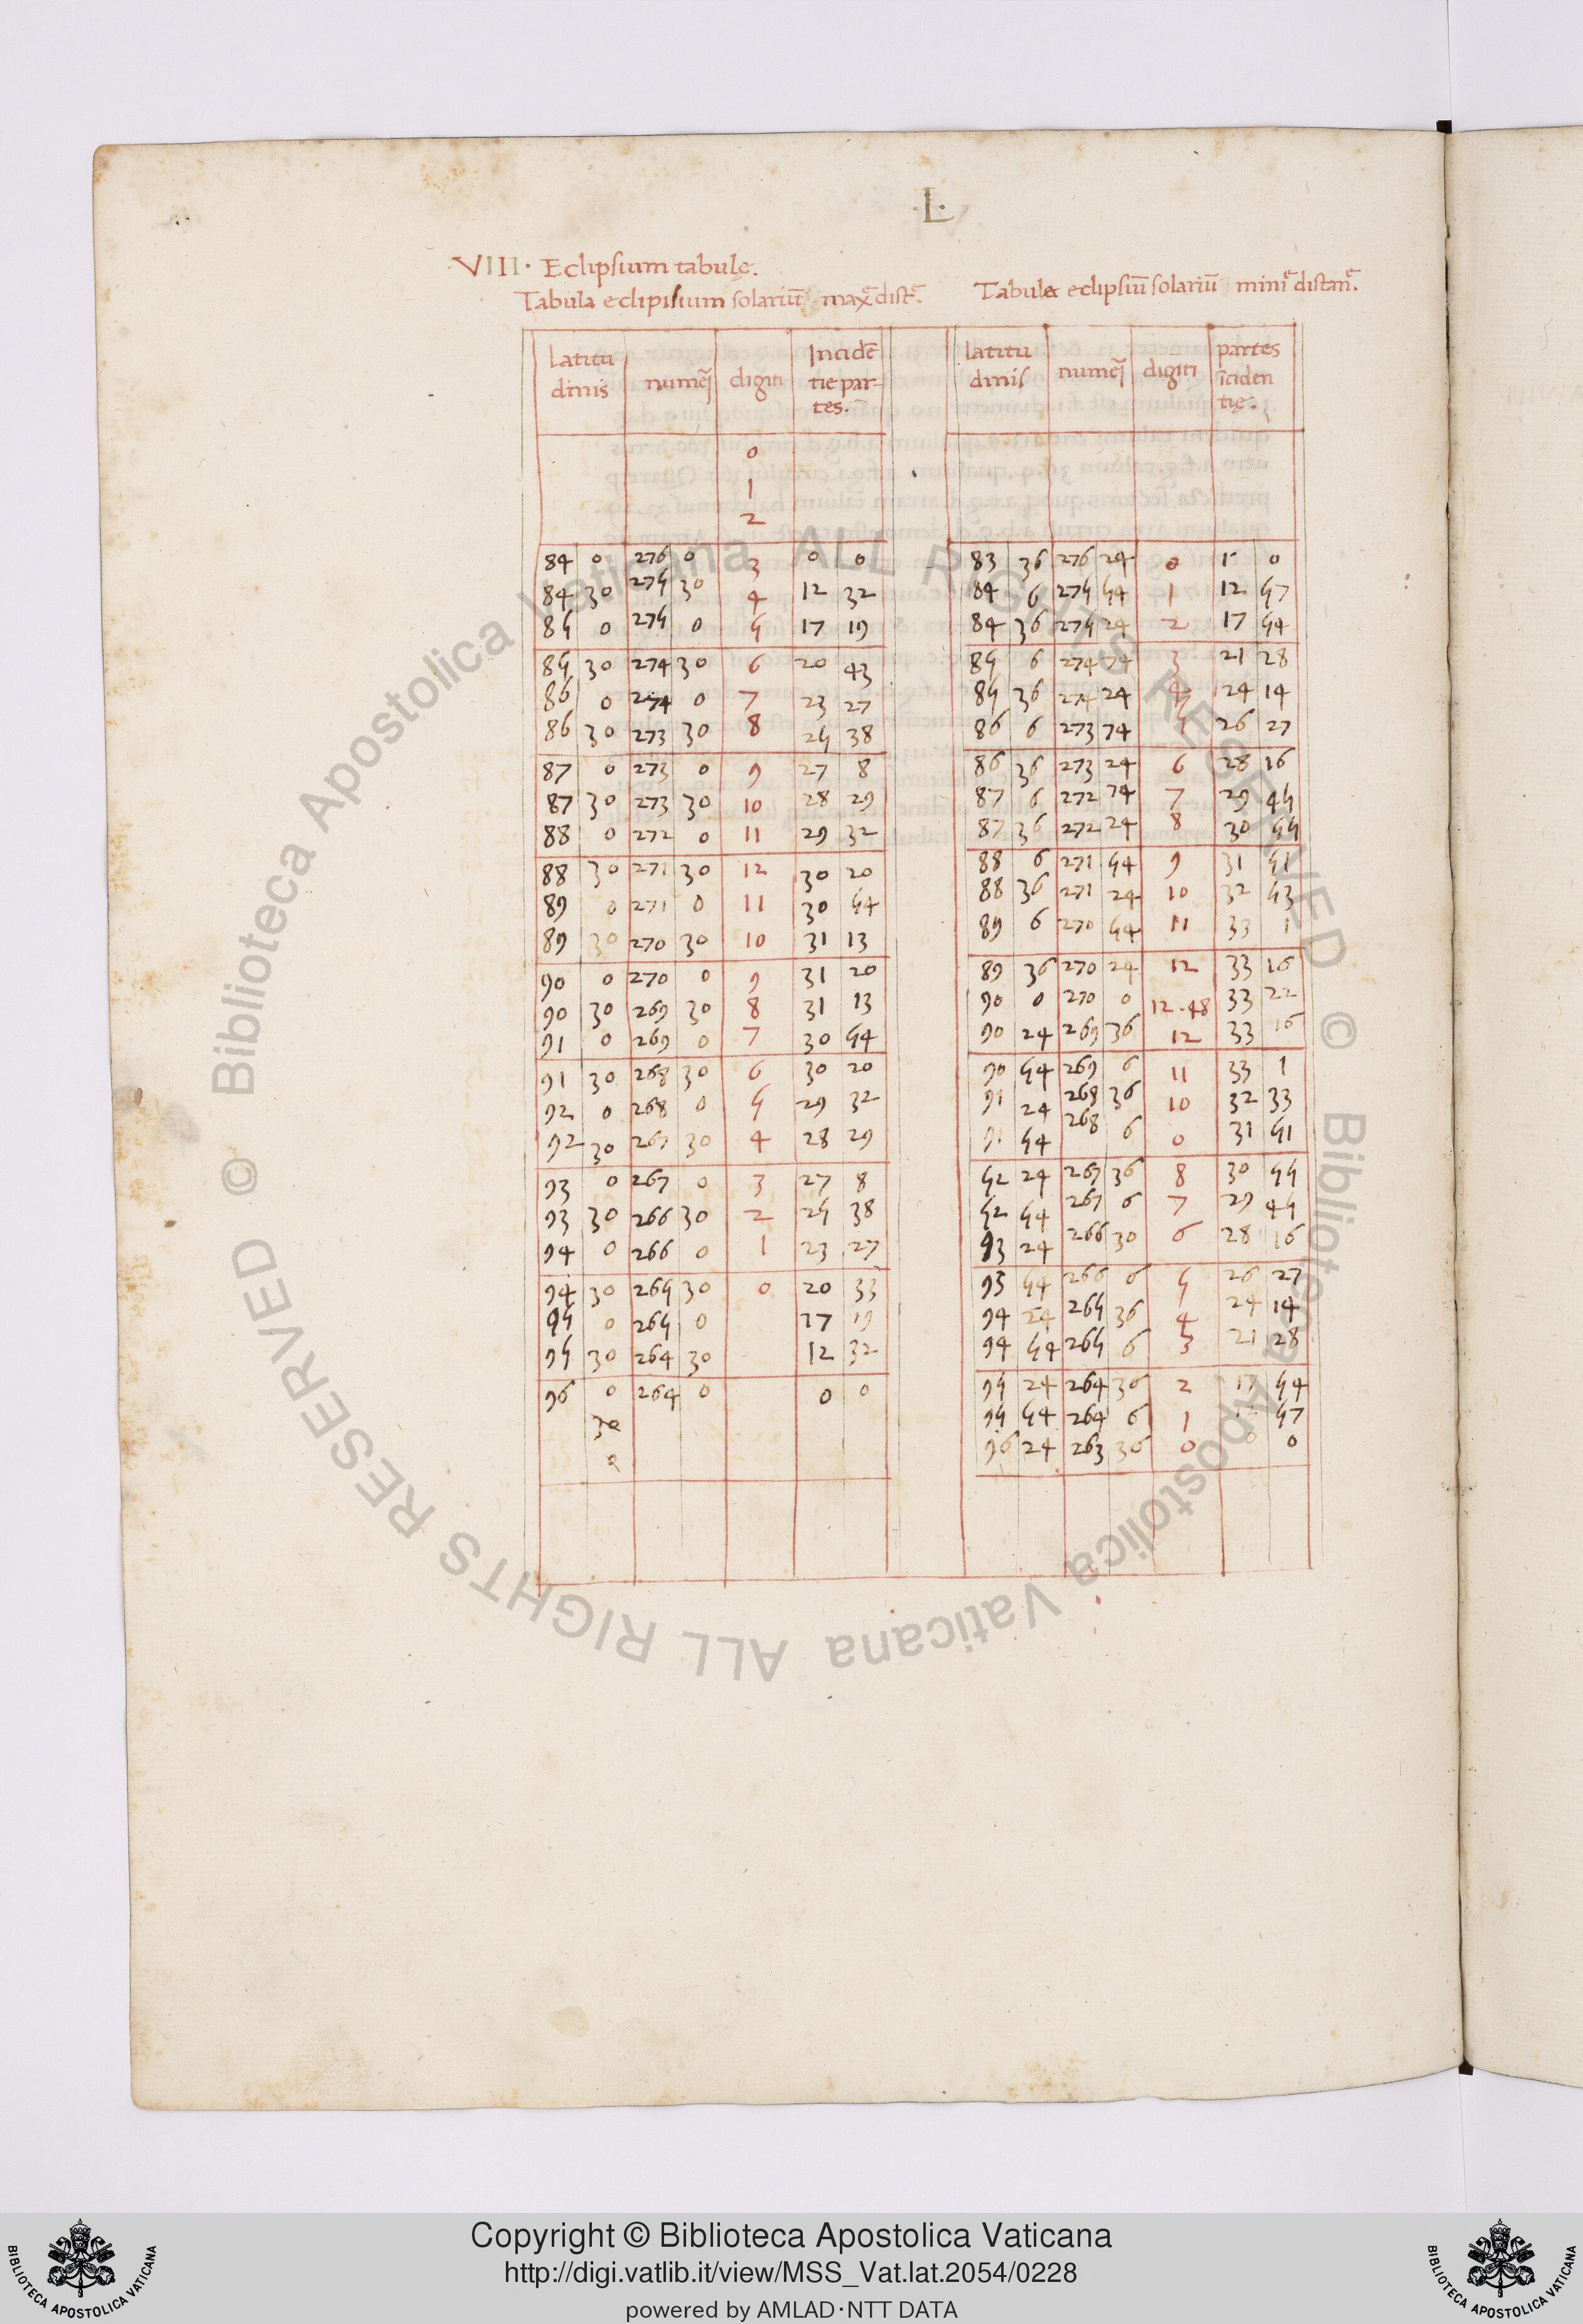 L.
VIII. Eclipsium tabulę.
Tabula eclipisium solariū maxę distę.
Tabula eclipsiū solariū minię distan.
Latitudinis | numeri | digiti | Incidētie partes.
0
1
2
84 0 276 0 3 0 0
84 30 275 30 4 12 32
85 0 275 0 5 17 19
85 30 274 30 6 20 43
86 0 274 0 7 23 27
86 30 273 30 8 25 38
87 0 273 0 9 27 8
87 30 273 30 10 28 29
88 0 272 0 11 29 32
88 30 271 30 12 30 20
89 0 271 0 11 30 54
89 30 270 30 10 31 13
90 0 270 0 9 31 20
90 30 269 30 8 31 13
91 0 269 0 7 30 54
91 30 268 30 6 30 20
92 0 268 0 5 29 32
92 30 267 30 4 28 29
93 0 267 0 3 27 8
93 30 266 30 2 25 38
94 0 266 0 1 23 27
94 30 265 30 0 20 33
95 0 265 0 17 19
95 30 264 30 12 32
96 0 264 0 0 0
30
0
latitudinis | numeri | digiti | partes īcidentię.
83 36 276 24 0 1 0
84 6 275 54 1 12 57
84 36 275 24 2 17 54
85 6 274 74 3 21 28
85 36 274 24 4 24 14
86 6 273 74 5 26 27
86 36 273 24 6 28 16
87 6 272 74 7 29 45
87 36 272 24 8 30 55
88 6 271 54 9 31 51
88 36 271 24 10 32 53
89 6 270 54 11 33 1
89 36 270 24 12 33 16
90 0 270 0 12.48 33 22
90 24 269 36 12 33 16
90 54 269 6 11 33 1
91 24 268 36 10 32 33
91 54 268 6 0 31 51
52 24 267 36 8 30 55
52 54 267 6 7 29 45
93 24 266 30 6 28 16
93 54 266 6 5 26 27
94 24 265 36 4 24 14
94 54 265 6 3 21 28
95 24 264 36 2 17 54
95 54 264 6 1 57
96 24 263 36 0 0 0
© Biblioteca Apostolica Vaticana ALL RIGHTS RESERVED © Biblioteca Apostolica Vaticana ALL RIGHTS RESERVED
BIBLIOTECA APOSTOLICA VATICANA
Copyright © Biblioteca Apostolica Vaticana
http://digi.vatlib.it/view/MSS_Vat.lat.2054/0228
powered by AMLAD·NTT DATA
BIBLIOTECA APOSTOLICA VATICANA